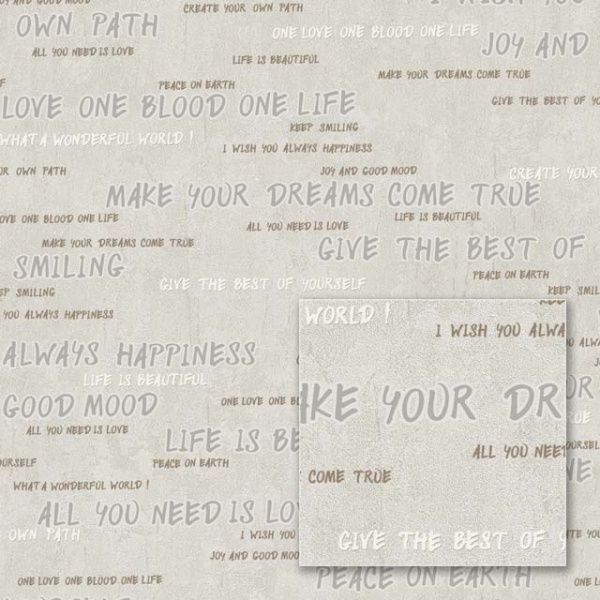 JOY AND GOOD MOOD
CREATE YOUR OWN PATH
OWN PATH
ONE LOVE ONE BLOOD ONE LIFE
JOY AND
ALL YOU NEED IS LOVE
LIFE IS BEAUTIFUL
MAKE YOUR DREAMS COME TRUE
PEACE ON EARTH
LOVE ONE BLOOD ONE LIFE
GIVE THE BEST OF YOU
KEEP SMILING
WHAT A WONDERFUL WORLD !
I WISH YOU ALWAYS HAPPINESS
R OWN PATH
JOY AND GOOD MOOD
CREATE YOUR
MAKE YOUR DREAMS COME TRUE
OVE ONE BLOOD ONE LIFE
ALL YOU NEED IS LOVE
LIFE IS BEAUTIFUL
MAKE YOUR DREAMS COME TRUE
GIVE THE BEST OF
SMILING
PEACE ON EARTH
GIVE THE BEST OF YOURSELF
EP SMILING
KEEP SMILING
YOU ALWAYS HAPPINESS
WORLD !
I WISH YOU ALWA
ALWAYS HAPPINESS
LIFE IS BEAUTIFUL
KE YOUR DR
GOOD MOOD
ONE LOVE ONE BL
ALL YOU NEED IS LOVE
LIFE IS BE
ALL YOU NEE
OURSELF
YOURSELF
PEACE ON EARTH
COME TRUE
WHAT A WONDERFUL WORLD !
ALL YOU NEED IS LO
OWN PATH
I WISH YOU
GIVE THE BEST OF Y
JOY AND GOOD MOO
PEACE ON EARTH
ONE LOVE ONE BLOOD ONE LIFE
LIFE IS BEAUTIFUL